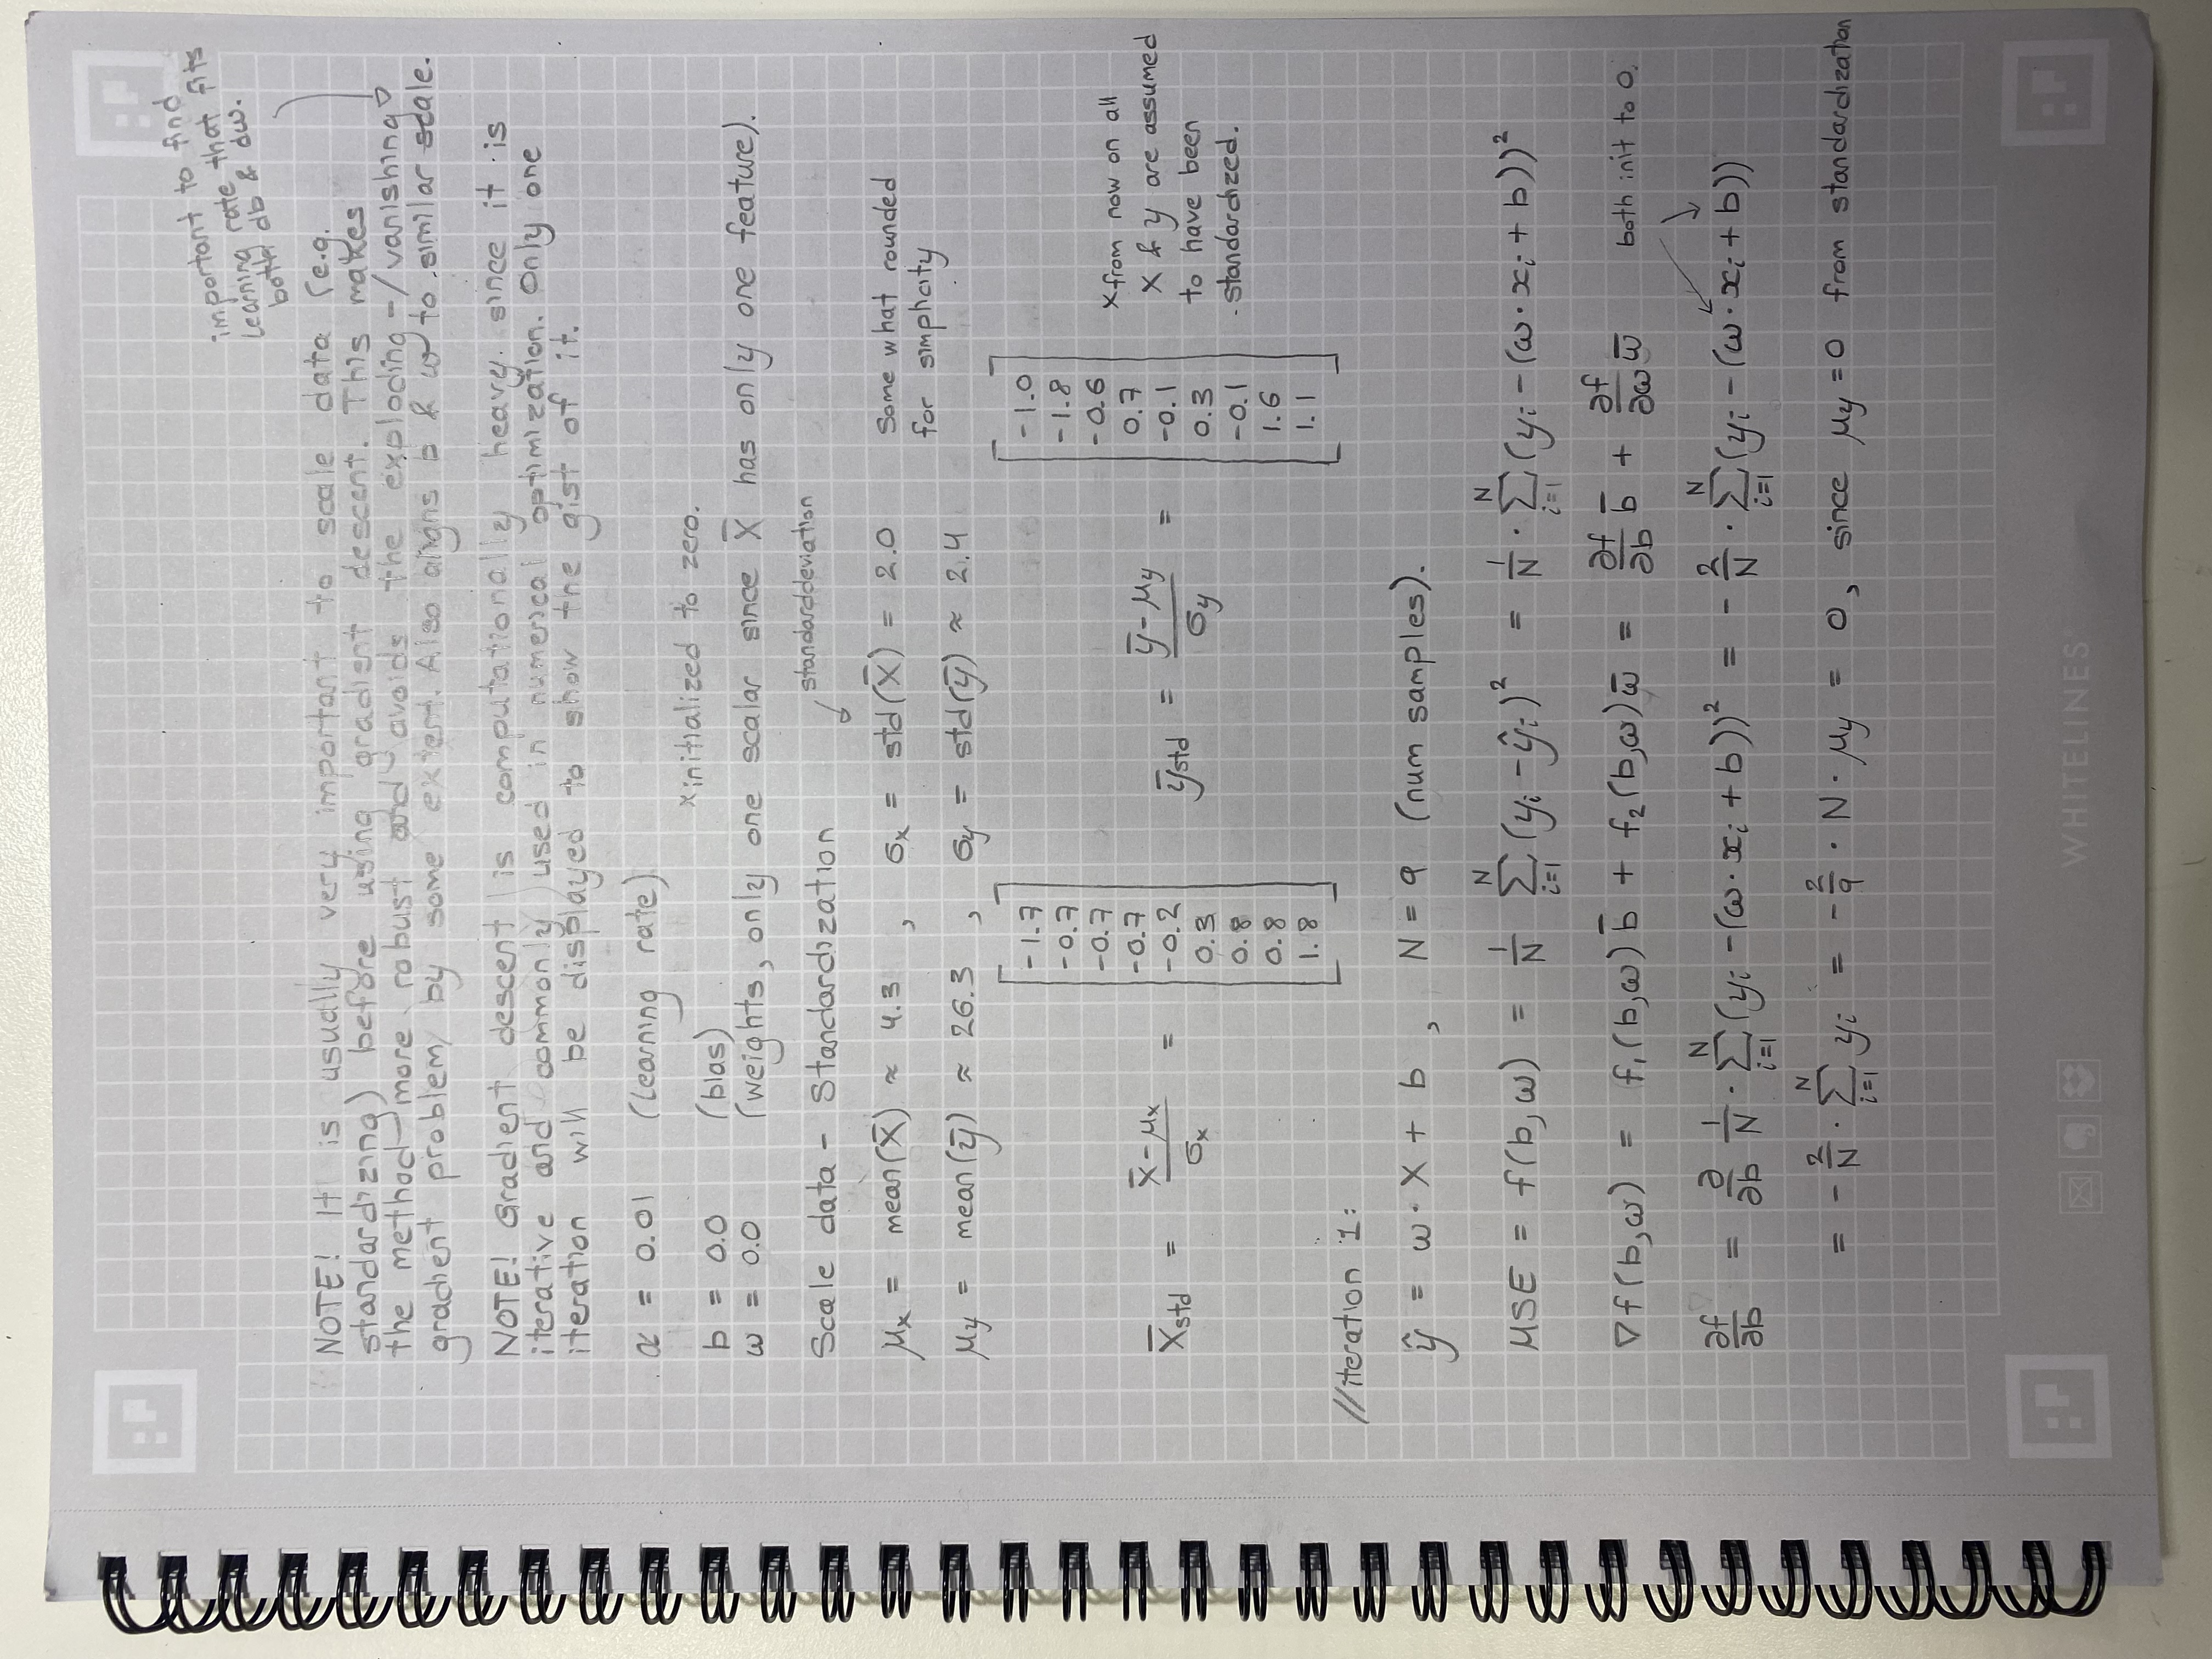 important to find
learning rate that fits
both db & dw.
NOTE! It is usually very important to scale data (e.g.
standardizing) before using gradient descent. This makes
the method more robust and avoids the exploding-/vanishing
gradient problem by some extent. Also aligns b & ω to similar scale.
NOTE! Gradient descent is computationally heavy since it is
iterative and commonly used in numerical optimization. Only one
iteration will be displayed to show the gist of it.
α = 0.01 (learning rate)
×initialized to zero.
b = 0.0 (bias)
ω = 0.0 (weights, only one scalar since X̄ has only one feature).
Scale data - Standardization
standarddeviation
μx = mean(X̄) ≈ 4.3 , σx = std(X̄) = 2.0
Some what rounded
for simplicity
μy = mean(ȳ) ≈ 26.3 , σy = std(ȳ) ≈ 2.4
X̄std = (X̄ - μx)/σx = [-1.7 -0.7 -0.7 -0.7 -0.2 0.3 0.8 0.8 1.8]
ȳstd = (ȳ - μy)/σy = [-1.0 -1.8 -0.6 0.7 -0.1 0.3 -0.1 1.6 1.1]
×from now on all
X & y are assumed
to have been
standardized.
//iteration 1:
ŷ = ω · X + b , N = 9 (num samples).
MSE = f(b,ω) = 1/N Σ_{i=1}^{N} (yi - ŷi)² = 1/N · Σ_{i=1}^{N} (yi - (ω · xi + b))²
∇f(b,ω) = f₁(b,ω) b̄ + f₂(b,ω) ω̄ = ∂f/∂b b̄ + ∂f/∂ω ω̄
both init to 0.
∂f/∂b = ∂/∂b 1/N · Σ_{i=1}^{N} (yi - (ω · xi + b))² = - 2/N · Σ_{i=1}^{N} (yi - (ω · xi + b))
= - 2/N · Σ_{i=1}^{N} yi = - 2/9 · N · μy = 0, since μy = 0 from standardization
WHITELINES®